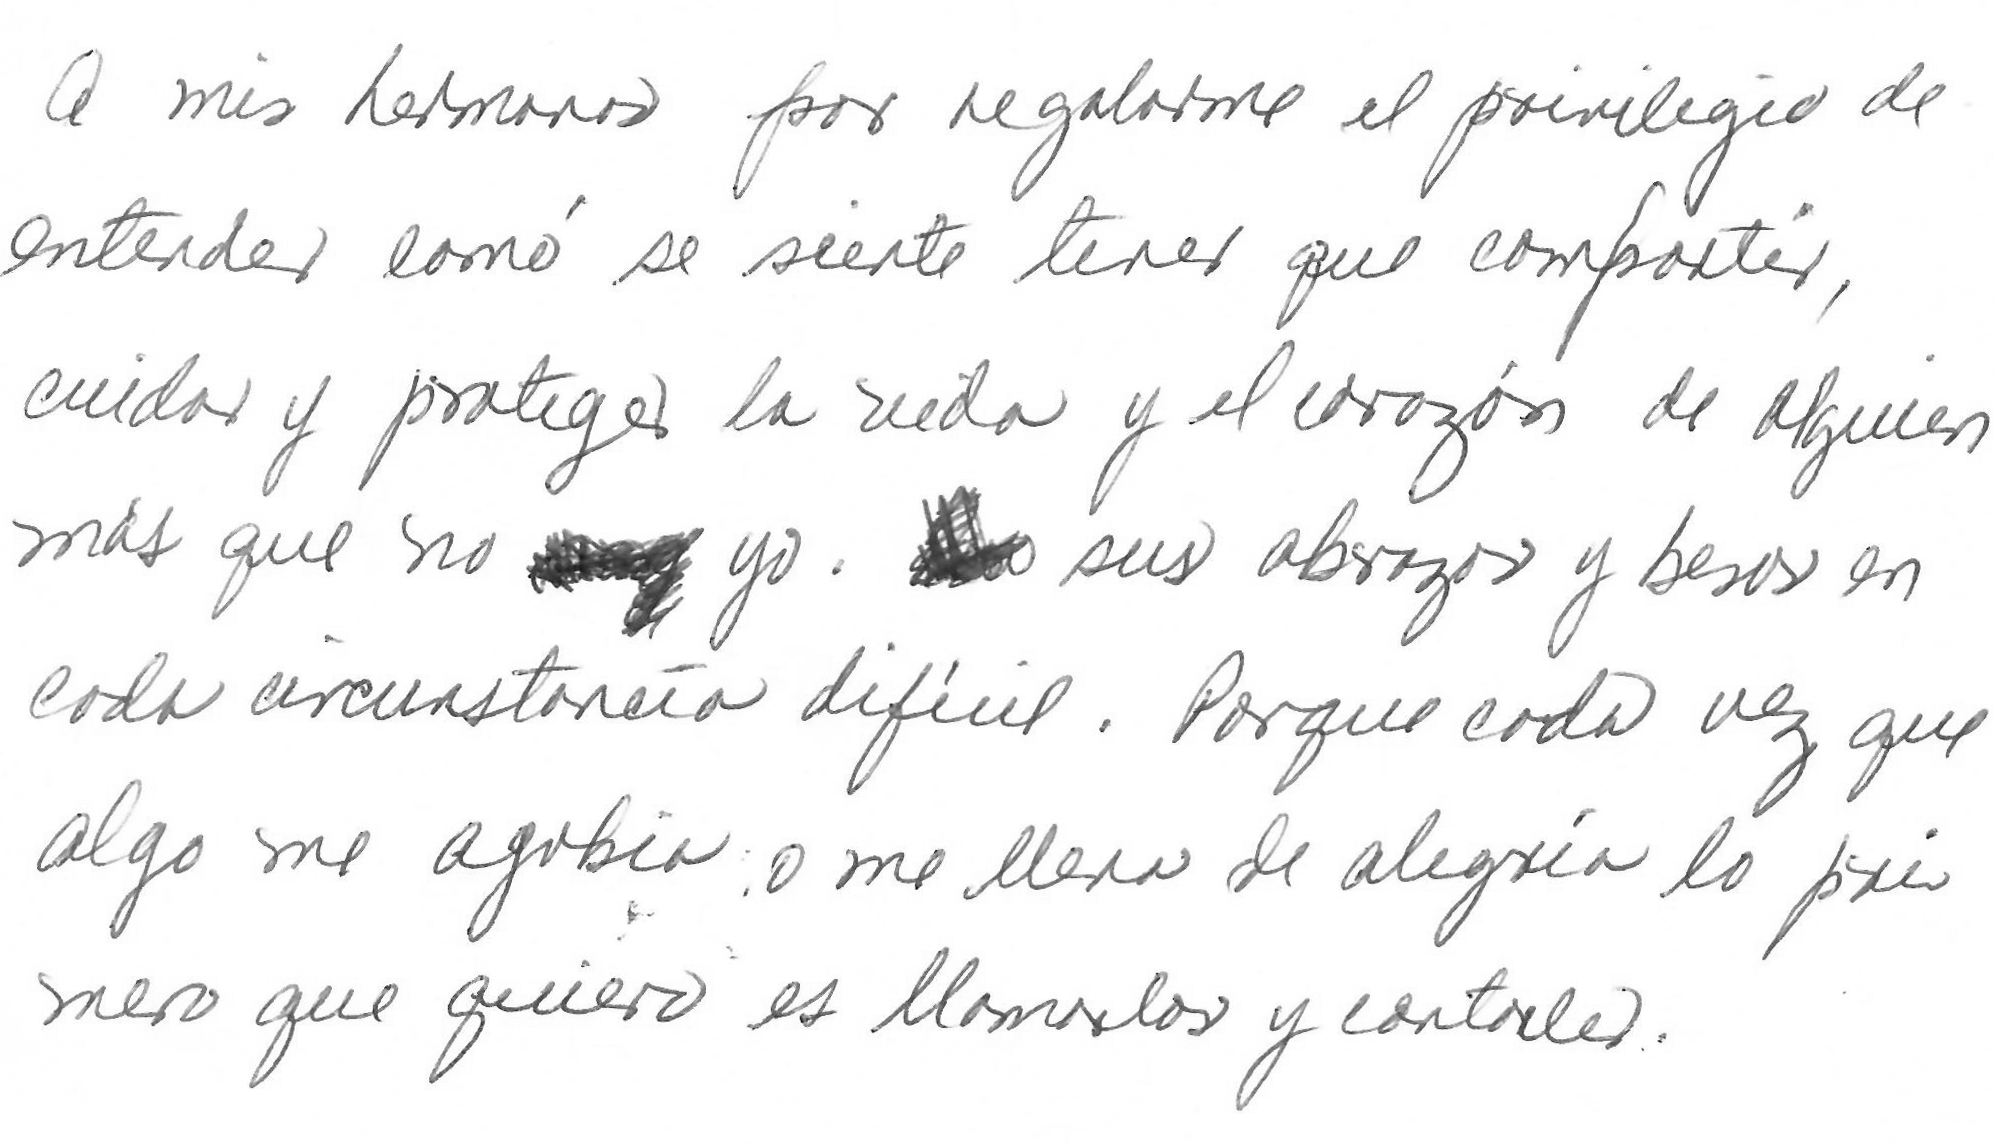 A mis hermanos por regalarme el privilegio de
entender comó se siente tener que compartir,
cuidar y proteger la vida y el corazón de alguien
más que no yo. sus abrazos y besos en
cada circunstancia difícil. Porque cada vez que
algo me agobia o me llena de alegría lo pri
mero que quiero es llamarlos y contarles.